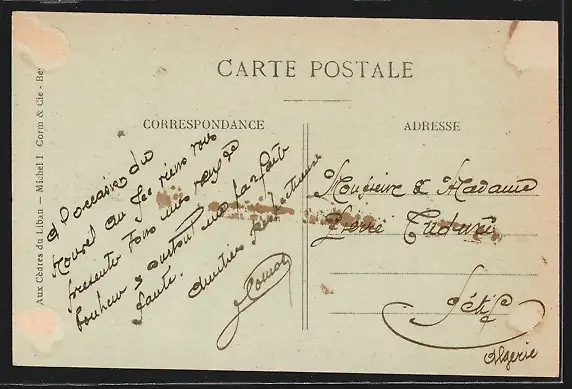 CARTE POSTALE
CORRESPONDANCE
ADRESSE
Aux Cèdres du Liban — Michel I Corm & Cie - Bey
à l'occasion du
nouvel an Je viens vous
présenter tous mes vœux de
bonheur & surtout une parfaite
santé.
Amitiés
Monsieur & Madame
Pierre
Sétif
Algérie